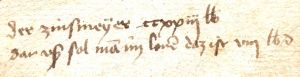 der zinsmeyer ccxxiij lb
dar vß sol man im lone daz ist viij lb d